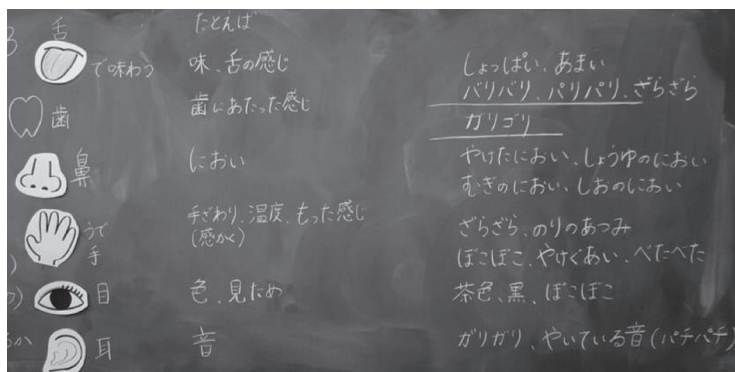 舌 たとえば
で味わう 味、舌の感じ しょっぱい、あまい
バリバリ、パリパリ、ざらざら
歯 歯にあたった感じ ガリゴリ
鼻 におい やけたにおい、しょうゆのにおい
むぎのにおい、しおのにおい
うで 手ざわり、温度、もった感じ ざらざら、のりのあつみ
手 (感かく) ぼこぼこ、やけぐあい、べたべた
目 色、見ため 茶色、黒、ぼこぼこ
耳 音 ガリガリ、やいている音(パチパチ)